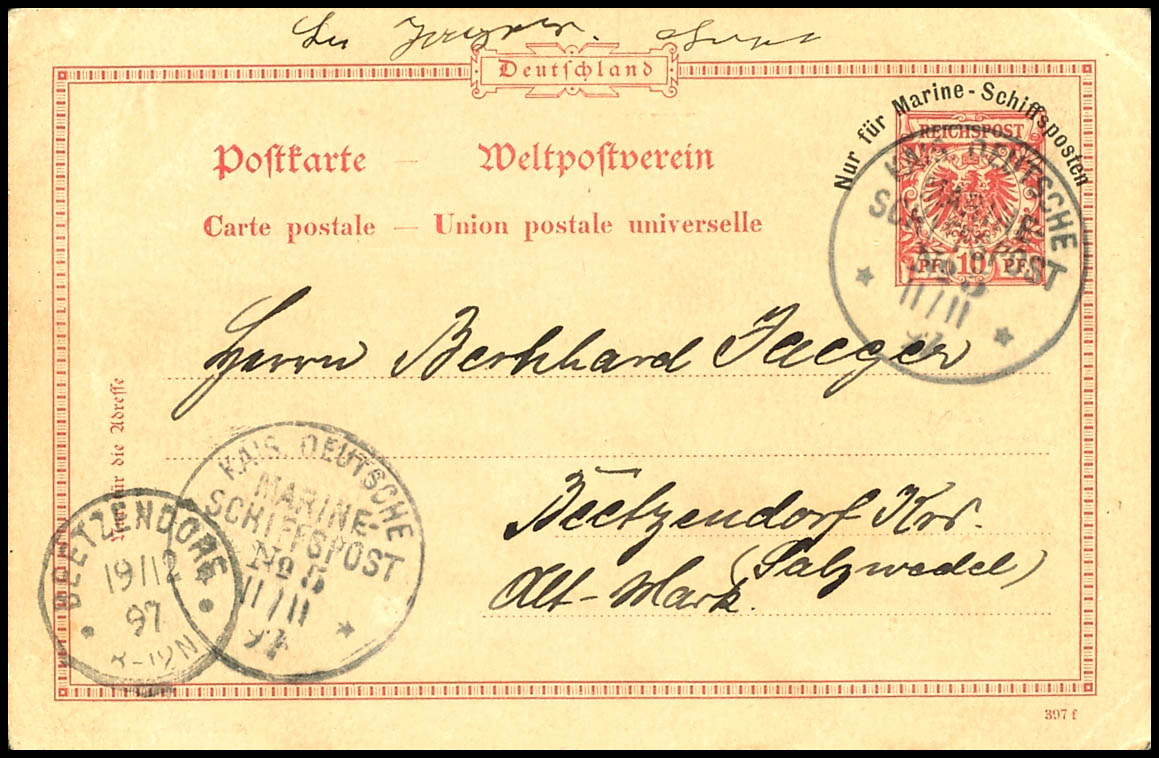 Deutschland
Nur für Marine-Schiffsposten
REICHSPOST
Postkarte — Weltpostverein
Carte postale — Union postale universelle
PF. 10 PF.
KAIS. DEUTSCHE
MARINE-
SCHIFFSPOST
No 5
11/11
97
Herrn Bernhard Jaeger
Nur für die Adresse
Beetzendorf Krs.
(Salzwedel)
Alt-Mark.
KAIS. DEUTSCHE
MARINE-
SCHIFFSPOST
No 5
11/11
97
BEETZENDORF
19/12
97
8-12N
397 f